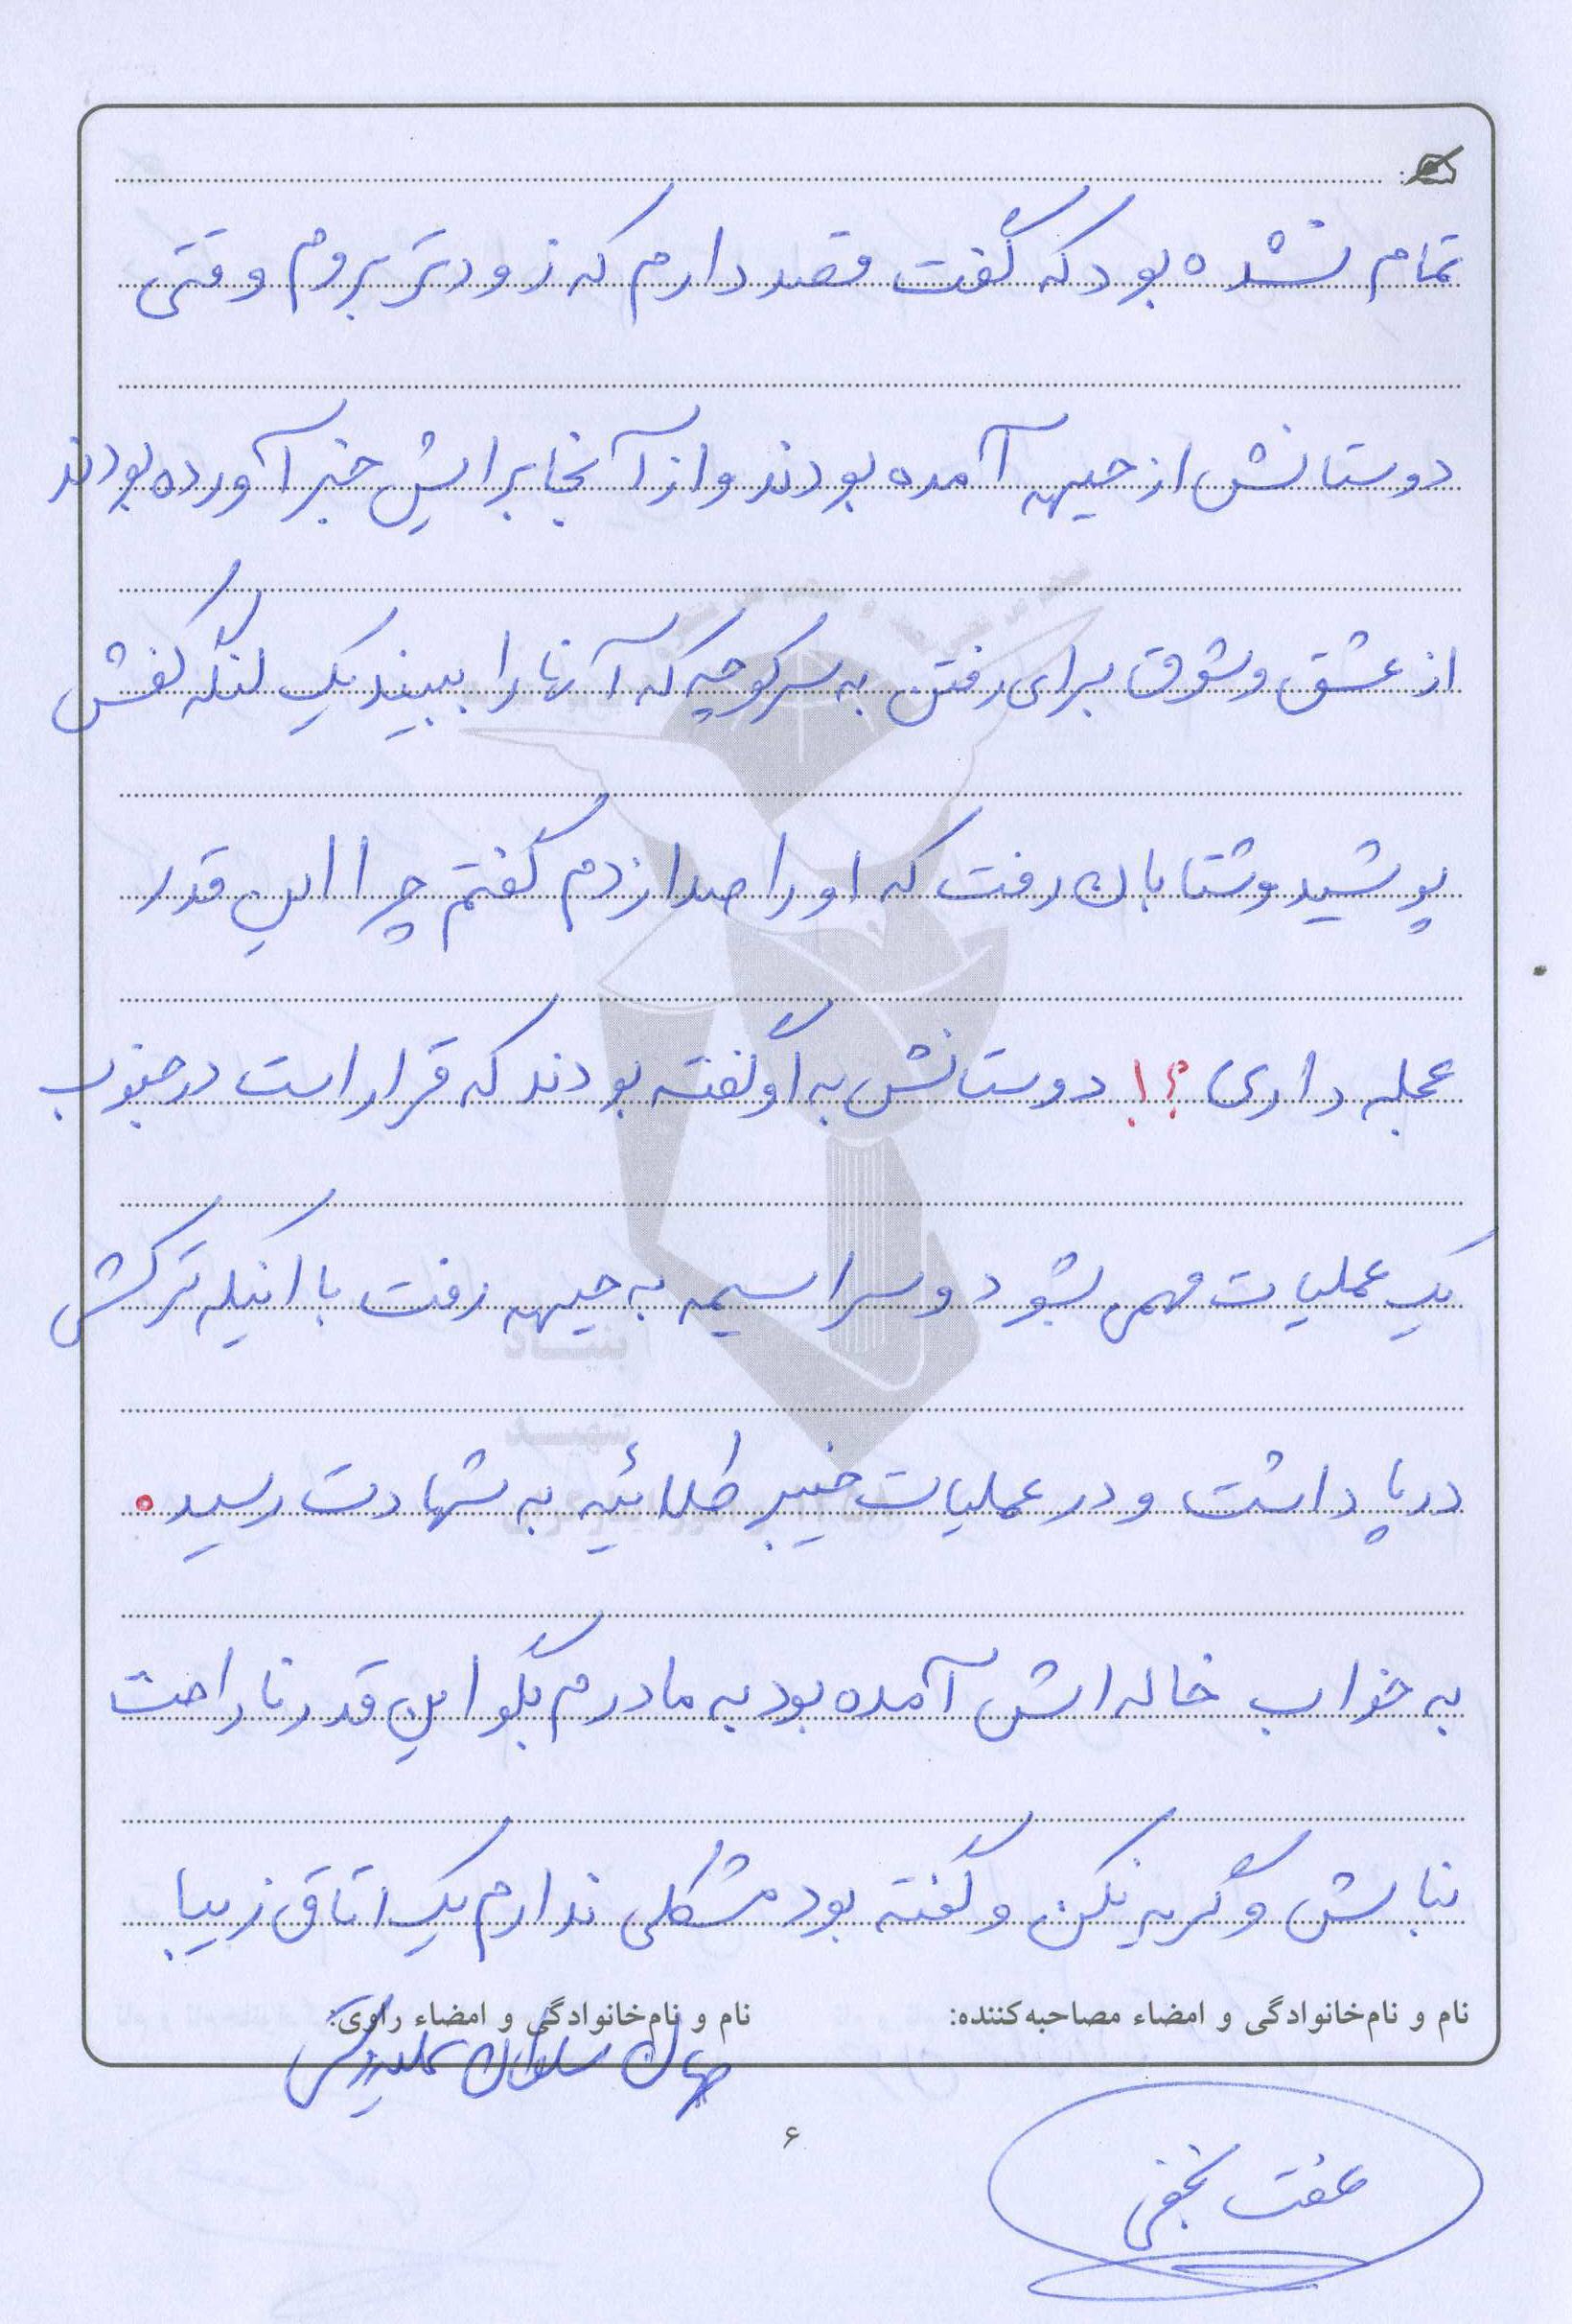 تمام نشده بود که گفت قصد دارم که زودتر بروم وقتی
دوستانش از جبهه آمده بودند و از آنجا برایش خبر آورده بودند
از عشق و شوق برای رفتن به سر کوچه که آنها را ببیند یک لنگه کفش
پوشید و شتابان رفت که او را صدا زدم گفتم چرا این قدر
عجله داری ؟! دوستانش به او گفته بودند که قرار است در جنوب
یک عملیات مهمی بشود و سراسیمه به جبهه رفت با اینکه ترکش
در پا داشت و در عملیات خیبر طلائیه به شهادت رسید.
به خواب خاله اش آمده بود به مادرم بگو این قدر ناراحت
نباش و گریه نکن و گفته بود مشکلی ندارم یک اتاق زیبا
نام و نام‌خانوادگی و امضاء مصاحبه‌کننده:
نام و نام‌خانوادگی و امضاء راوی:
۶
عفت نجفی
بنیاد
شهید